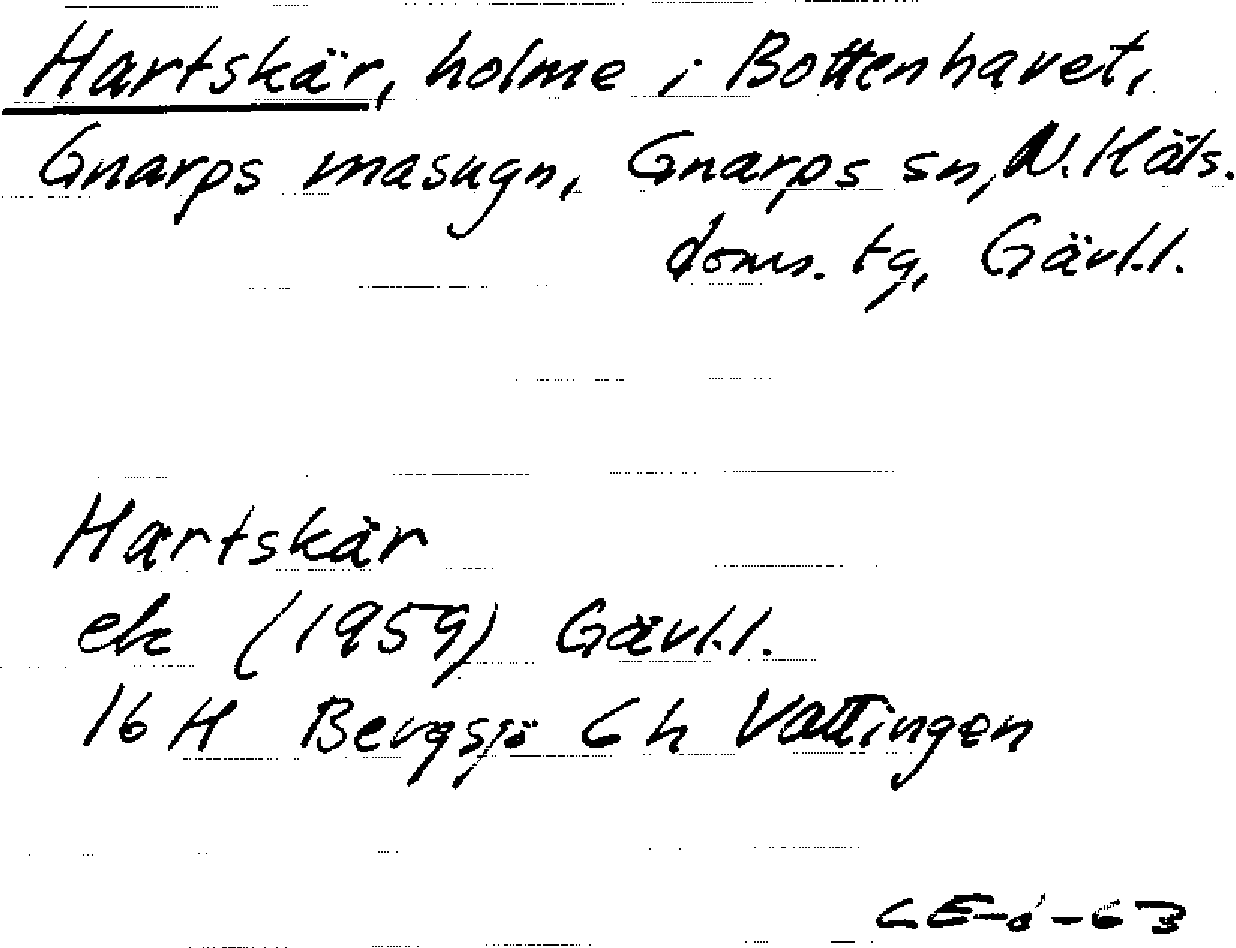 Hartskär, holme i Bottenhavet,
Gnarps masugn, Gnarps sn, N. Häls.
doms. tg, Gävl.l.
Hartskär
ek (1959) Gävl.l.
16 H Bergsjö 6 h Vattingen